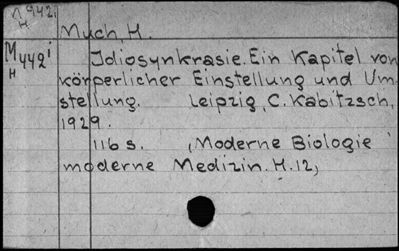 n942i
H
Much, H.
M442i
H
Idiosynkrasie. Ein Kapitel von
körperlicher Einstellung und Um=
stellung. Leipzig, C. Kabitzsch,
1929.
116 s. (Moderne Biologie
moderne Medizin. H. 12)